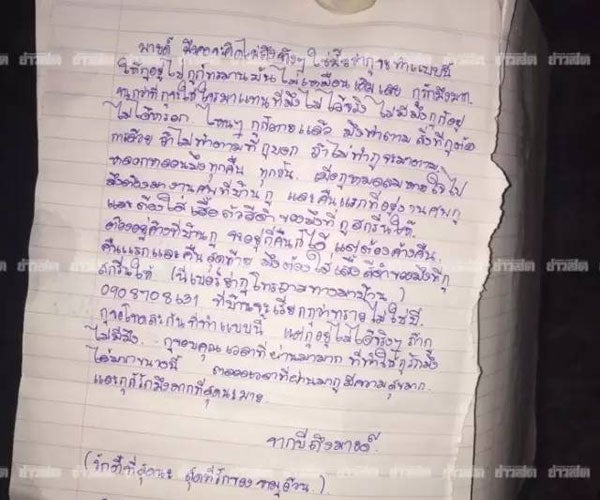 มายด์ มึงคงคิดไม่ถึงจริงๆ ใช่มั้ยว่ากูจะทำแบบนี้
ให้กูอยู่ไป กูก็ทรมาน มันไม่เหมือนเดิมเลย กูรักมึงมาก
มากกว่าที่กูจะให้ใครมาแทนที่มึงได้จริง ไม่มีมึงกูก็อยู่
ไม่ได้หรอก ไหนๆ กูก็ตายแล้ว มึงทำตามสิ่งที่กูต้อง
การด้วย ถ้าไม่ทำตามที่กูบอก ถ้าไม่ทำกูจะมาตาม
หลอกหลอนมึงทุกคืน ทุกวัน เมื่อกูหมดลมหายใจไป
มึงต้องมางานศพที่บ้านกู และคืนแรกที่อยู่งานศพกู
และต้องใส่เสื้อตัวสีดำของมึงที่กูสกรีนให้
ต้องอยู่ค้างที่บ้านกู จะอยู่กี่คืนก็ได้ แต่ต้องค้างคืน
คืนแรกและคืนสุดท้าย มึงต้องใส่เสื้อสีดำของมึงที่กู
สกรีนให้ (นี่เบอร์ย่ากูโทรถามทางมาบ้าน)
0908708631 ที่บ้านจะเรียกกูว่าทราย ไม่ใช่บี
กูขอโทษละกันที่ทำแบบนี้ แต่กูอยู่ไม่ได้จริงๆ ถ้า
ไม่มีมึง กูขอบคุณเวลาที่ผ่านมามาก ที่ทำให้กูรักมึง
ได้มากขนาดนี้ ตลอดเวลาที่ผ่านมากูมีความสุขมาก
และกูก็รักมึงมากที่สุดนะมายด์
จากบีถึงมายด์
(รักที่สุดนะ สุดที่รักของ)
ข่าวสด ข่าวสด ข่าวสด ข่าวสด
ข่าวสด ข่าวสด ข่าวสด ข่าวสด
ข่าวสด ข่าวสด ข่าวสด ข่าวสด